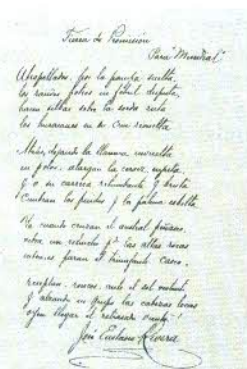 Tierra de Promisión
Para "Mundial"
Atropellados, por la pampa suelta,
los raudos potros en febril disputa,
hacen silbar sobre la sorda ruta
los huracanes en su crin revuelta.
Atrás, dejando la llanura envuelta
en polvo, alargan la cerviz enjuta
y a su carrera retumbante y bruta
cimbran los pindos y la palma esbelta
Ya cuando cruzan el austral peñasco,
vibra un relincho por las altas rocas
entonces paran el triunfante casco,
resoplan, roncos, ante el sol violento
y alzando en grupo las cabezas locas
oyen llegar el retrasado viento!
José Eustasio Rivera